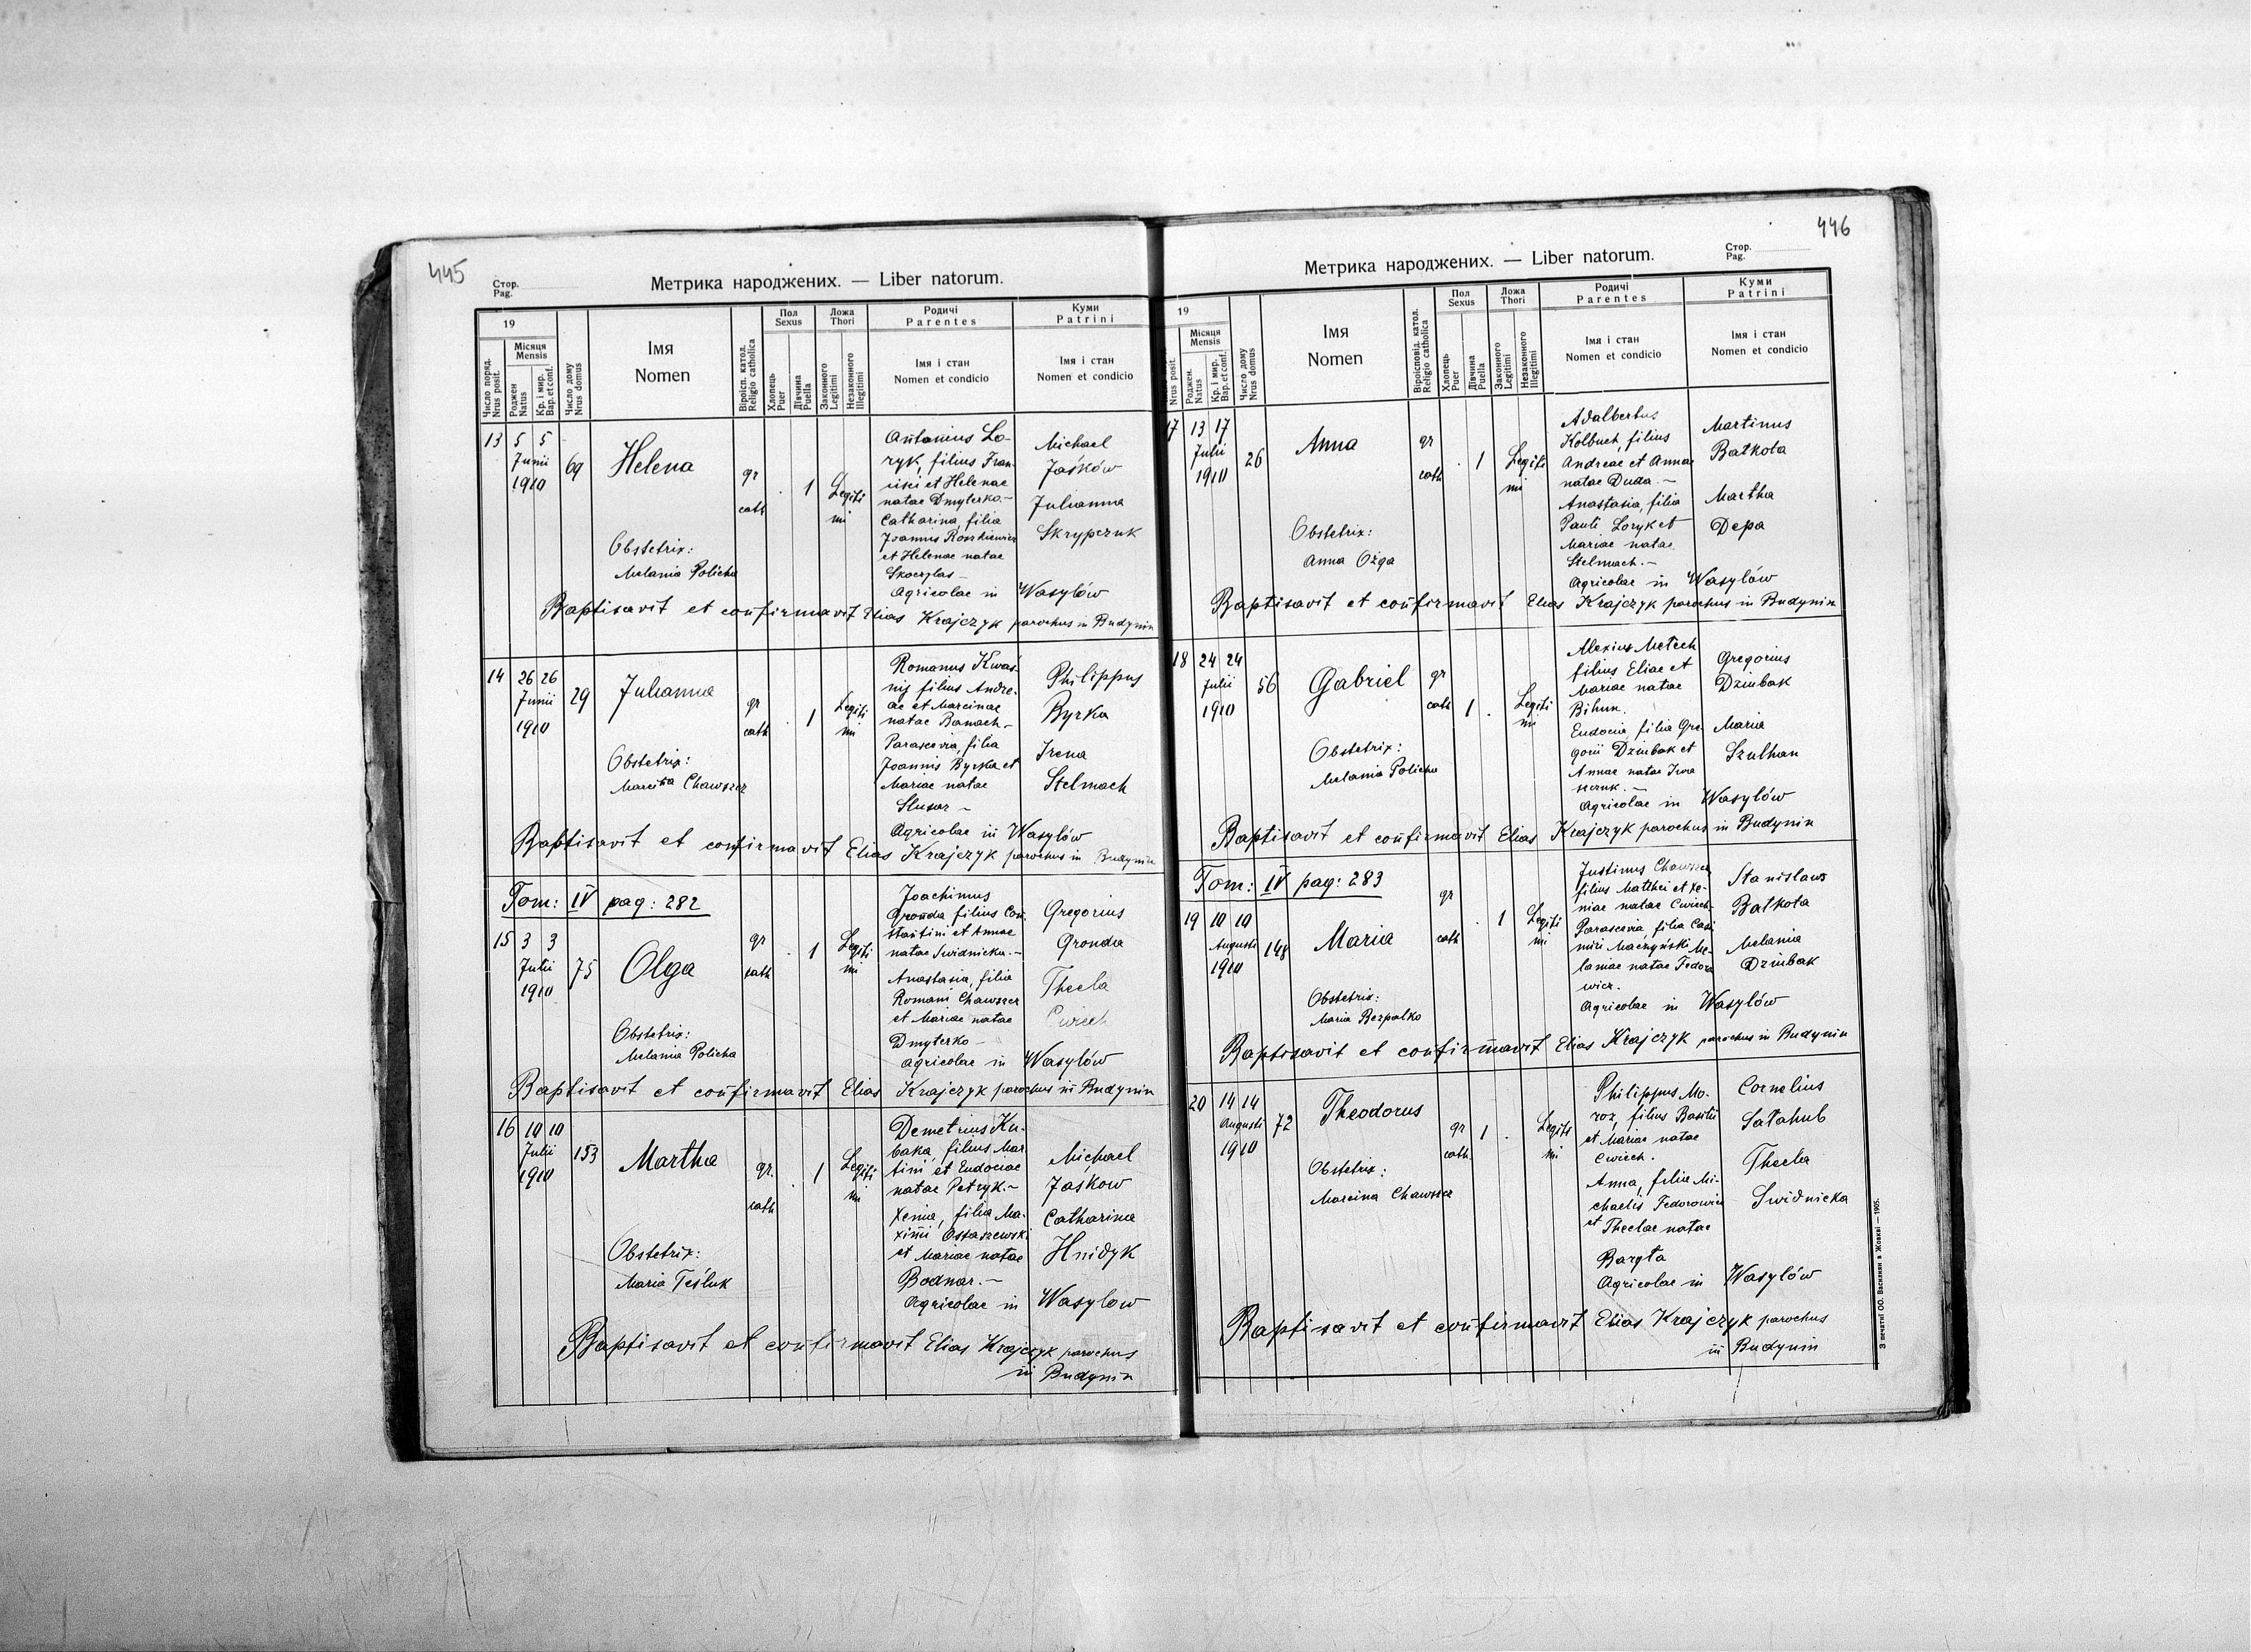 445
Стор.
Pag.
Метрика народжених. — Liber natorum.
19
Число поряд.
Nrus posit.
Місяця
Mensis
Роджен
Natus
Кр. і мир.
Bap. et conf.
Число дому
Nrus domus
Імя
Nomen
Віроісп. катол.
Religio catholica
Пол
Sexus
Хлопець
Puer
Дівчина
Puella
Ложа
Thori
Законного
Legitimi
Незаконного
Illegitimi
Родичі
Parentes
Імя і стан
Nomen et condicio
Куми
Patrini
Імя і стан
Nomen et condicio
13 5 5
Junii
1910
69
Helena
gr
cath
1
Legiti
mi
Antonius Lo-
ryk, filius Fran-
cisci et Helenae
natae Dmyterko.-
Catharina, filia
Joannis Roszkiewicz
et Helenae natae
Skoczylas -
Agricolae in Wasylów
Michael
Jaśków
Julianna
Skrypczuk
Obstetrix:
Melania Policha
Baptisavit et confirmavit Elias Krajczyk parochus in Budynin
14 26 26
Junii
1910
29
Julianna
gr
cath
1
Legiti
mi
Romanus Kwaś-
nij filius Andre-
ae et Marcinae
natae Banach -
Parascevia, filia
Joannis Byrka et
Mariae natae
Slusar -
Agricolae in Wasylów
Philippus
Byrka
Irena
Stelmach
Obstetrix:
Marcina Chawszcz
Baptisavit et confirmavit Elias Krajczyk parochus in Budynin
Tom: IV pag: 282
15 3 3
Julii
1910
75
Olga
gr
cath
1
Legiti
mi
Joachimus
Gronda filius Con-
stantini et Annae
natae Swidnicka. -
Anastasia, filia
Romani Chawszcz
et Mariae natae
Dmyterko -
agricolae in Wasylów
Gregorius
Gronda
Thecla
Cwiech
Obstetrix:
Melania Policha
Baptisavit et confirmavit Elias Krajczyk parochus in Budynin
16 10 10
Julii
1910
153
Martha
gr.
cath
1
Legiti
mi
Demetrius Ku-
baka, filius Mar
tini et Eudociae
natae Petryk. -
Xenia, filia Ma-
ximi Ostaszewski
et Mariae natae
Bodnar. -
Agricolae in Wasylow
Michael
Jaśkow
Catharina
Hnidyk
Obstetrix:
Maria Teśluk
Baptisavit et confirmavit Elias Krajczyk parochus
in Budynin
446
Стор.
Pag.
Метрика народжених. — Liber natorum.
19
Nrus posit.
Місяця
Mensis
Роджен.
Natus
Кр. і мир.
Bap. et conf.
Число дому
Nrus domus
Імя
Nomen
Віроісповід. катол.
Religio catholica
Пол
Sexus
Хлопець
Puer
Дівчина
Puella
Ложа
Thori
Законного
Legitimi
Незаконного
Illegitimi
Родичі
Parentes
Імя і стан
Nomen et condicio
Куми
Patrini
Імя і стан
Nomen et condicio
17 13 17
Julii
1910
26
Anna
gr
cath
1
Legiti
mi
Adalbertus
Kolbuch, filius
Andreae et Annae
natae Duda. -
Anastasia, filia
Pauli Loryk et
Mariae natae
Stelmach. -
Agricolae in Wasylów
Martinus
Batkota
Martha
Depa
Obstetrix:
Anna Ożga
Baptisavit et confirmavit Elias Krajczyk parochus in Budynin
18 24 24
Julii
1910
56
Gabriel
gr
cath
1
Legiti
mi
Alexius Metech
filius Eliae et
Mariae natae
Bihun.
Eudocia, filia Gre-
gorii Dziubak et
Annae natae Iwa
szczuk. -
Agricolae in Wasylów
Gregorius
Dziubak
Maria
Szulhan
Obstetrix:
Melania Policha
Baptisavit et confirmavit Elias Krajczyk parochus in Budynin
Tom: IV pag: 283
19 10 10
Augusti
1910
148
Maria
gr
cath
1
Legiti
mi
Justinus Chawszcz
filius Matthei et Xe-
niae natae Cwiech-
Parascevia, filia Casi
miri Maczyński Me-
laniae natae Fedoro
wicz.
Agricolae in Wasylów
Stanislaus
Batkota
Melania
Dziubak
Obstetrix:
Maria Bezpalko
Baptisavit et confirmavit Elias Krajczyk parochus in Budynin
20 14 14
Augusti
1910
72
Theodorus
gr
cath
1
Legiti
mi
Philippus Mo-
roz, filius Basilii
et Mariae natae
Cwiech.
Anna, filia Mi-
chaelis Fedorowicz
et Theclae natae
Baryła
Agricolae in Wasylów
Cornelius
Satahub
Thecla
Swidnicka
Obstetrix:
Marcina Chawszcz
Baptisavit et confirmavit Elias Krajczyk parochus
in Budynin
З печатні ОО. Василиян в Жовкві — 1905.